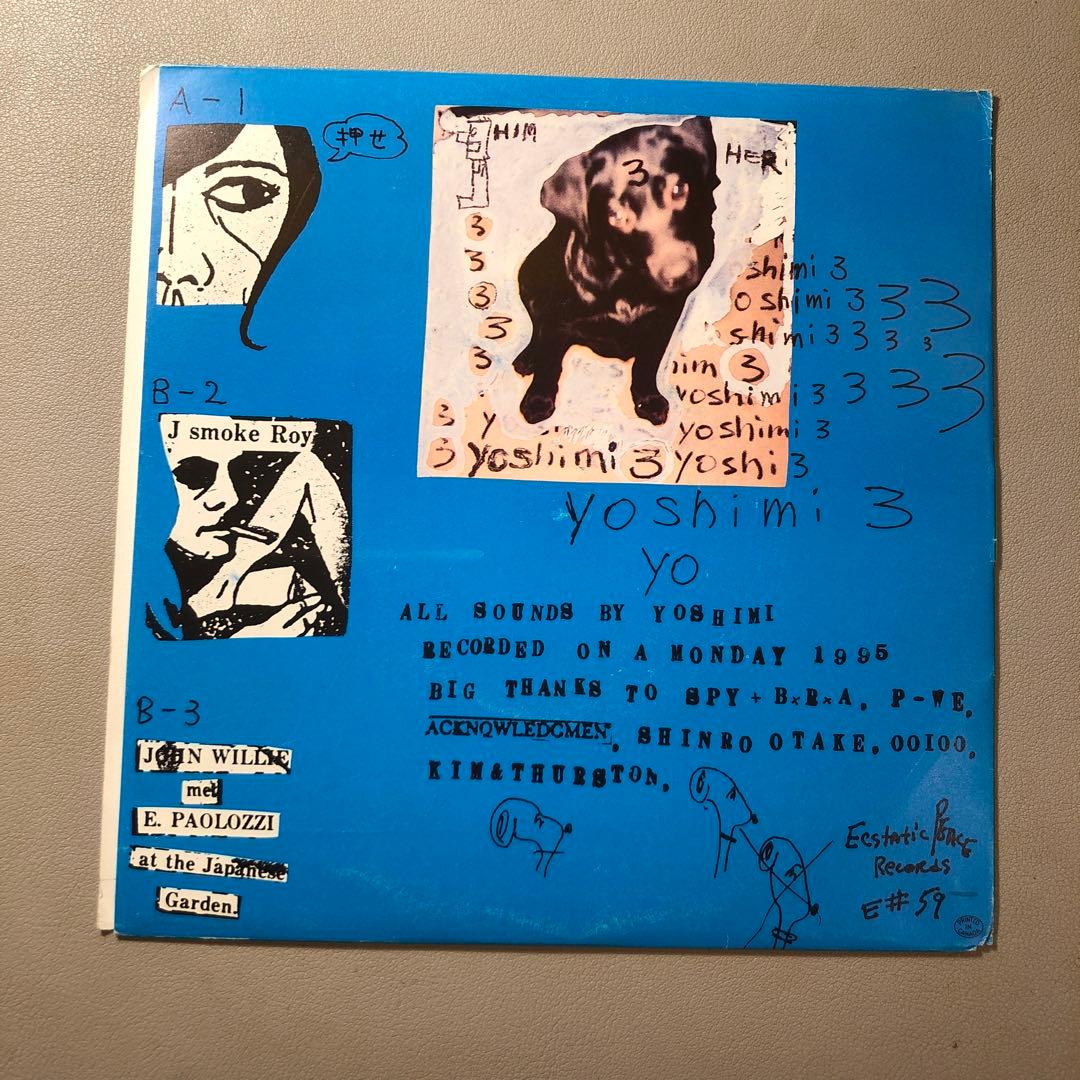 A-1
押せ
B-2
J smoke Roy
B-3
JOHN WILLIE
met
E. PAOLOZZI
at the Japanese
Garden.
HIM
HER
3
3
3
3
3
3
shimi 3
oshimi 3 3 3
shimi 3 3 3 3
him 3
yoshimi 3 3 3 3
3 y
yoshimi 3
3 yoshimi 3 yoshi 3
yoshimi 3
YO
ALL SOUNDS BY YOSHIMI
RECORDED ON A MONDAY 1995
BIG THANKS TO SPY + B×R×A, P-WE,
ACKNOWLEDGMEN, SHINRO OTAKE, OOIOO,
KIM&THURSTON,
Ecstatic PEACE
Records
E# 59
PRINTED
IN
CANADA